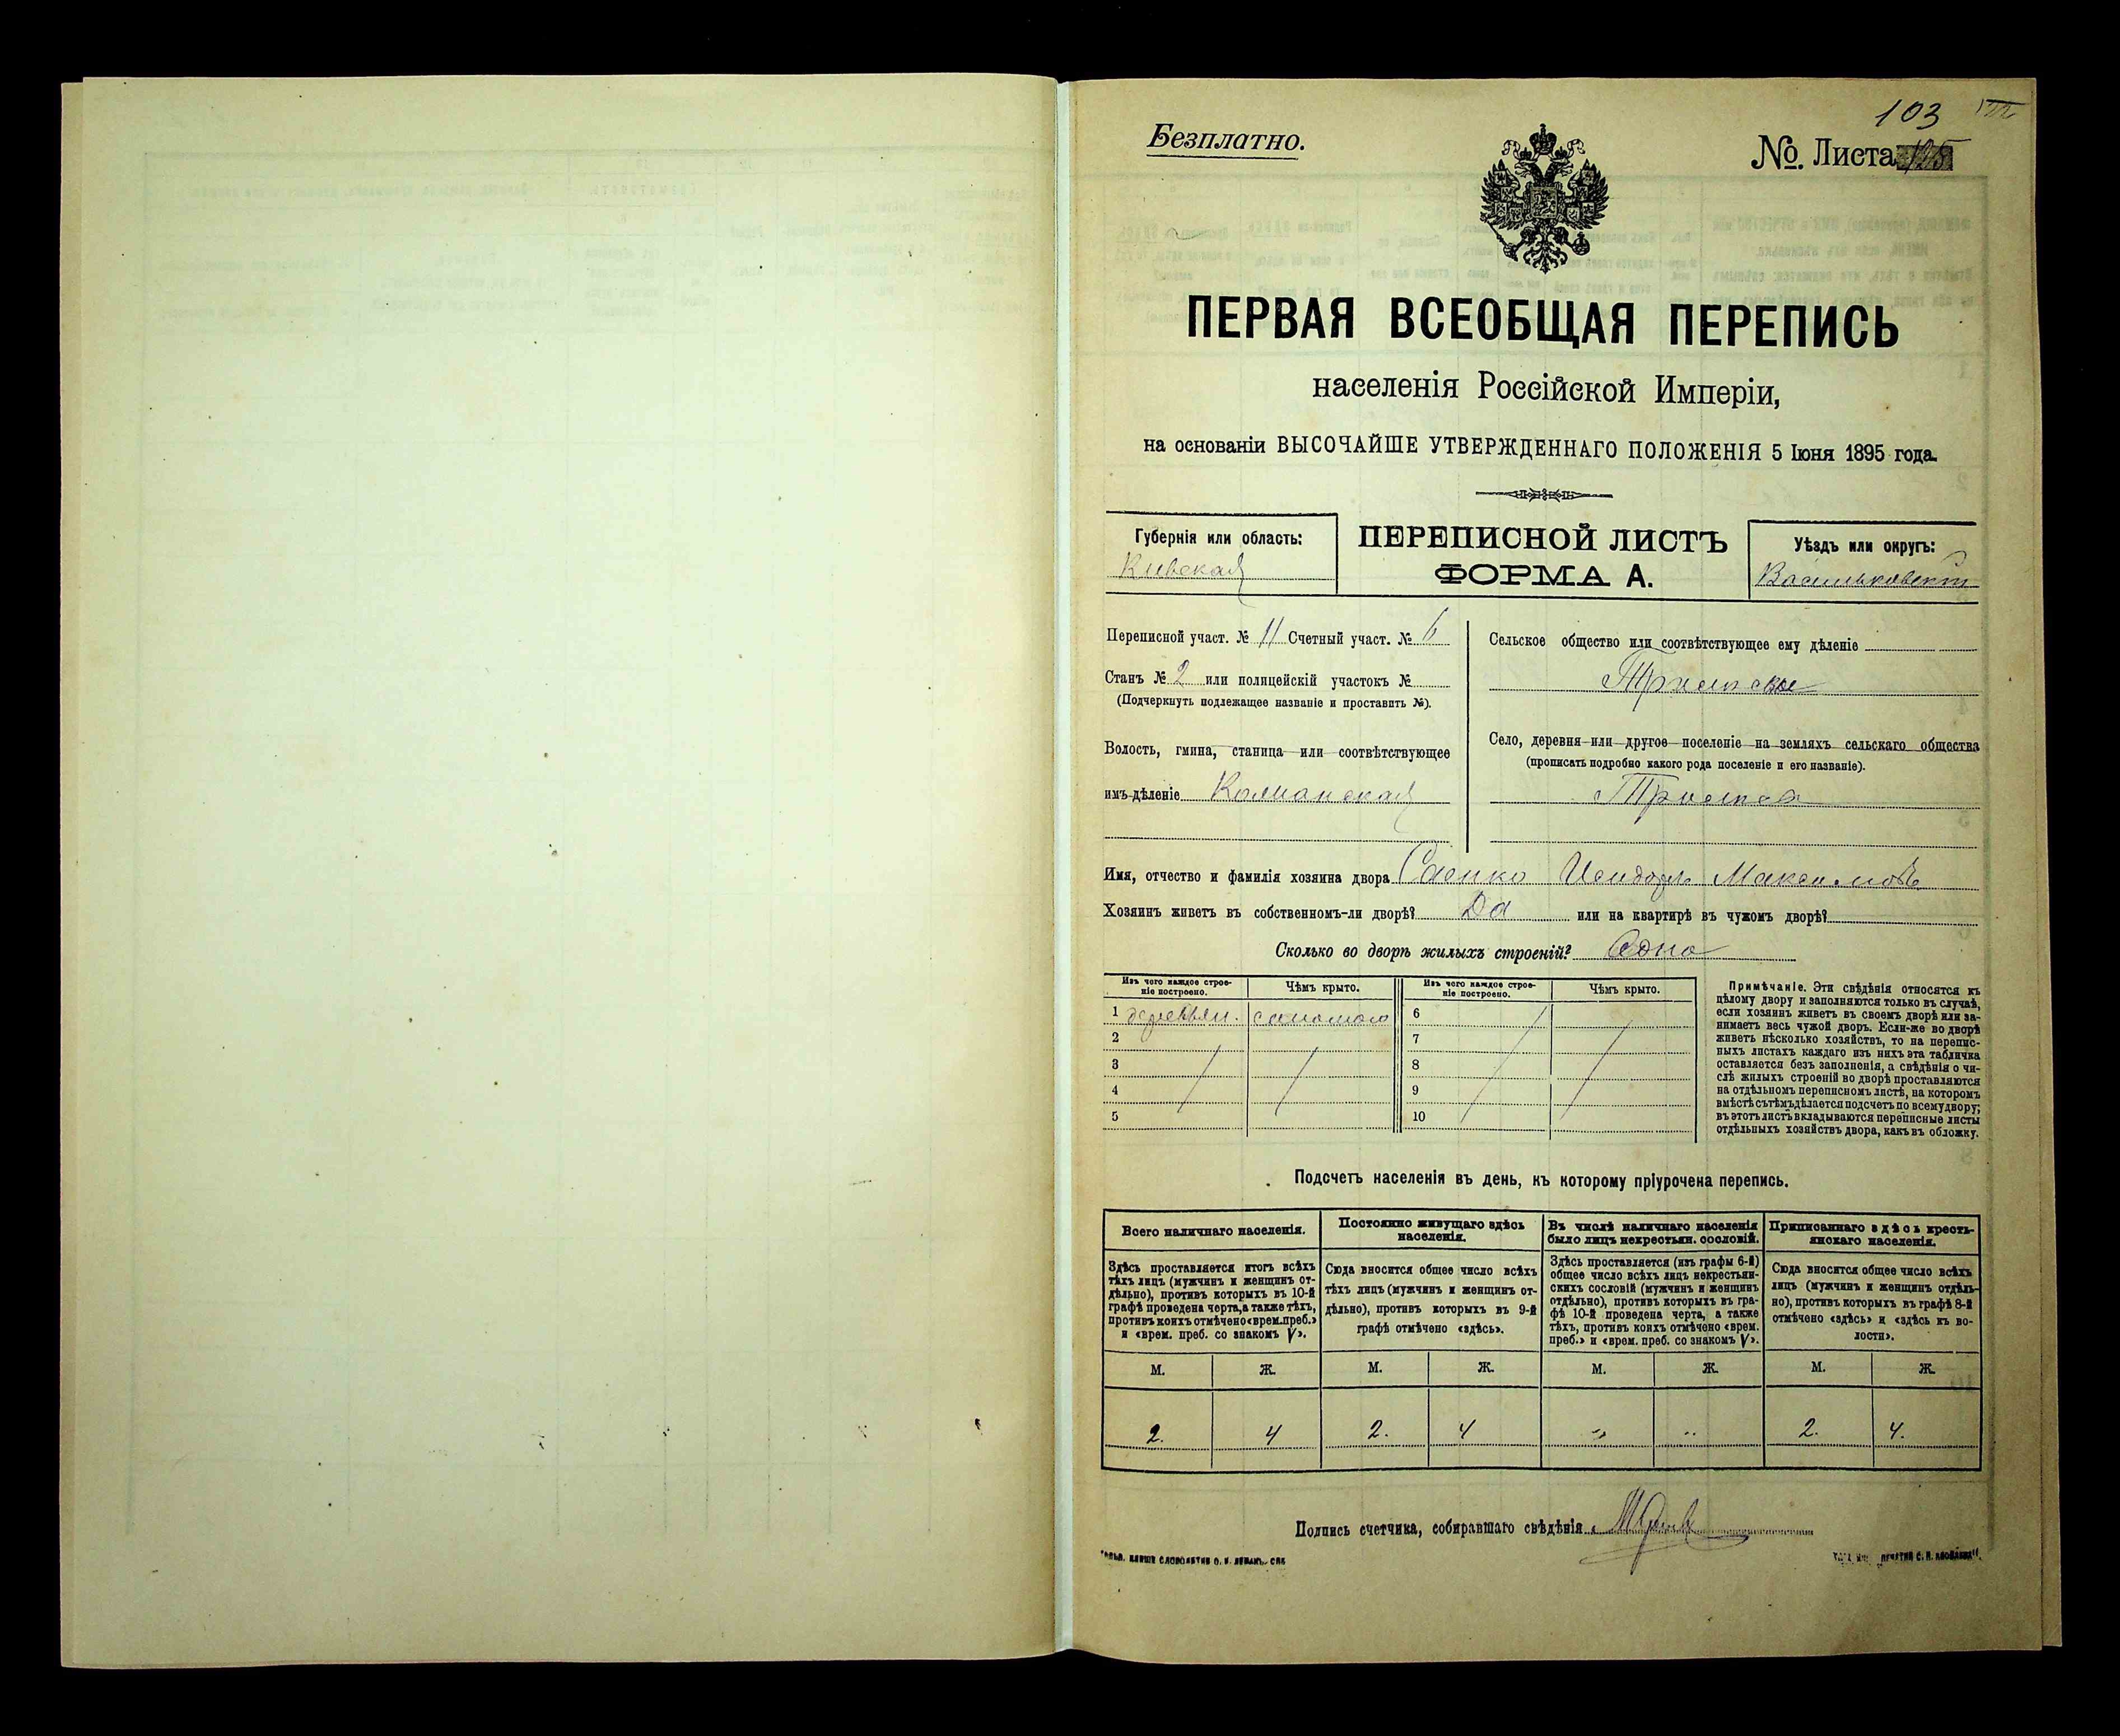 103
Безплатно.
№. Листа 125
ПЕРВАЯ ВСЕОБЩАЯ ПЕРЕПИСЬ
населенія Россійской Имперіи,
на основаніи ВЫСОЧАЙШЕ УТВЕРЖДЕННАГО ПОЛОЖЕНІЯ 5 Іюня 1895 года.
Губернія или область:
Киевская
ПЕРЕПИСНОЙ ЛИСТЪ
ФОРМА А.
Уѣздъ или округъ:
Васильковскій
Переписной участ. № 11 Счетный участ. № 6
Станъ № 2 или полицейскій участокъ №
(Подчеркнуть подлежащее названіе и проставить №).
Волость, гмина, станица или соотвѣтствующее
имъ дѣленіе
Сельское общество или соотвѣтствующее ему дѣленіе
Село, деревня или другое поселеніе на земляхъ сельскаго общества
(прописать подробно какого рода поселеніе и его названіе).
Имя, отчество и фамилія хозяина двора Саенко Исидоръ Максимовъ
Хозяинъ живетъ въ собственномъ-ли дворѣ? Да или на квартирѣ въ чужомъ дворѣ?
Сколько во дворѣ жилыхъ строеній? Одно
Изъ чего каждое строе-
ніе построено.
Чѣмъ крыто.
Изъ чего каждое строе-
ніе построено.
Чѣмъ крыто.
1 деревян. соломою 6
2 7
3 8
4 9
5 10
Примѣчаніе. Эти свѣдѣнія относятся къ
цѣлому двору и заполняются только въ случаѣ,
если хозяинъ живетъ въ своемъ дворѣ или за-
нимаетъ весь чужой дворъ. Если-же во дворѣ
живетъ нѣсколько хозяйствъ, то на перепис-
ныхъ листахъ каждаго изъ нихъ эта табличка
оставляется безъ заполненія, а свѣдѣнія о чи-
слѣ жилыхъ строеній во дворѣ проставляются
на отдѣльномъ переписномъ листѣ, на которомъ
вмѣстѣ съ тѣмъ дѣлается подсчетъ по всему двору;
въ этотъ листъ вкладываются переписные листы
отдѣльныхъ хозяйствъ двора, какъ въ обложку.
Подсчетъ населенія въ день, къ которому пріурочена перепись.
Всего наличнаго населенія.
Здѣсь проставляется итогъ всѣхъ
тѣхъ лицъ (мужчинъ и женщинъ от-
дѣльно), противъ которыхъ въ 10-й
графѣ проведена черта, а также тѣхъ,
противъ коихъ отмѣчено «врем. преб.»
и «врем. преб. со знакомъ V».
Постоянно живущаго здѣсь
населенія.
Сюда вносится общее число всѣхъ
тѣхъ лицъ (мужчинъ и женщинъ от-
дѣльно), противъ которыхъ въ 9-й
графѣ отмѣчено «здѣсь».
Въ числѣ наличнаго населенія
было лицъ некрестьян. сословій.
Здѣсь проставляется (изъ графы 6-й)
общее число всѣхъ лицъ некрестьян-
скихъ сословій (мужчинъ и женщинъ
отдѣльно), противъ которыхъ въ гра-
фѣ 10-й проведена черта, а также
тѣхъ, противъ коихъ отмѣчено «врем.
преб.» и «врем. преб. со знакомъ V».
Приписаннаго здѣсь кресть-
янскаго населенія.
Сюда вносится общее число всѣхъ
лицъ (мужчинъ и женщинъ отдѣль-
но), противъ которыхъ въ графѣ 8-й
отмѣчено «здѣсь» и «здѣсь къ во-
лости».
М. Ж. М. Ж. М. Ж. М. Ж.
2. 4 2. 4 " " 2. 4.
Подпись счетчика, собиравшаго свѣдѣнія